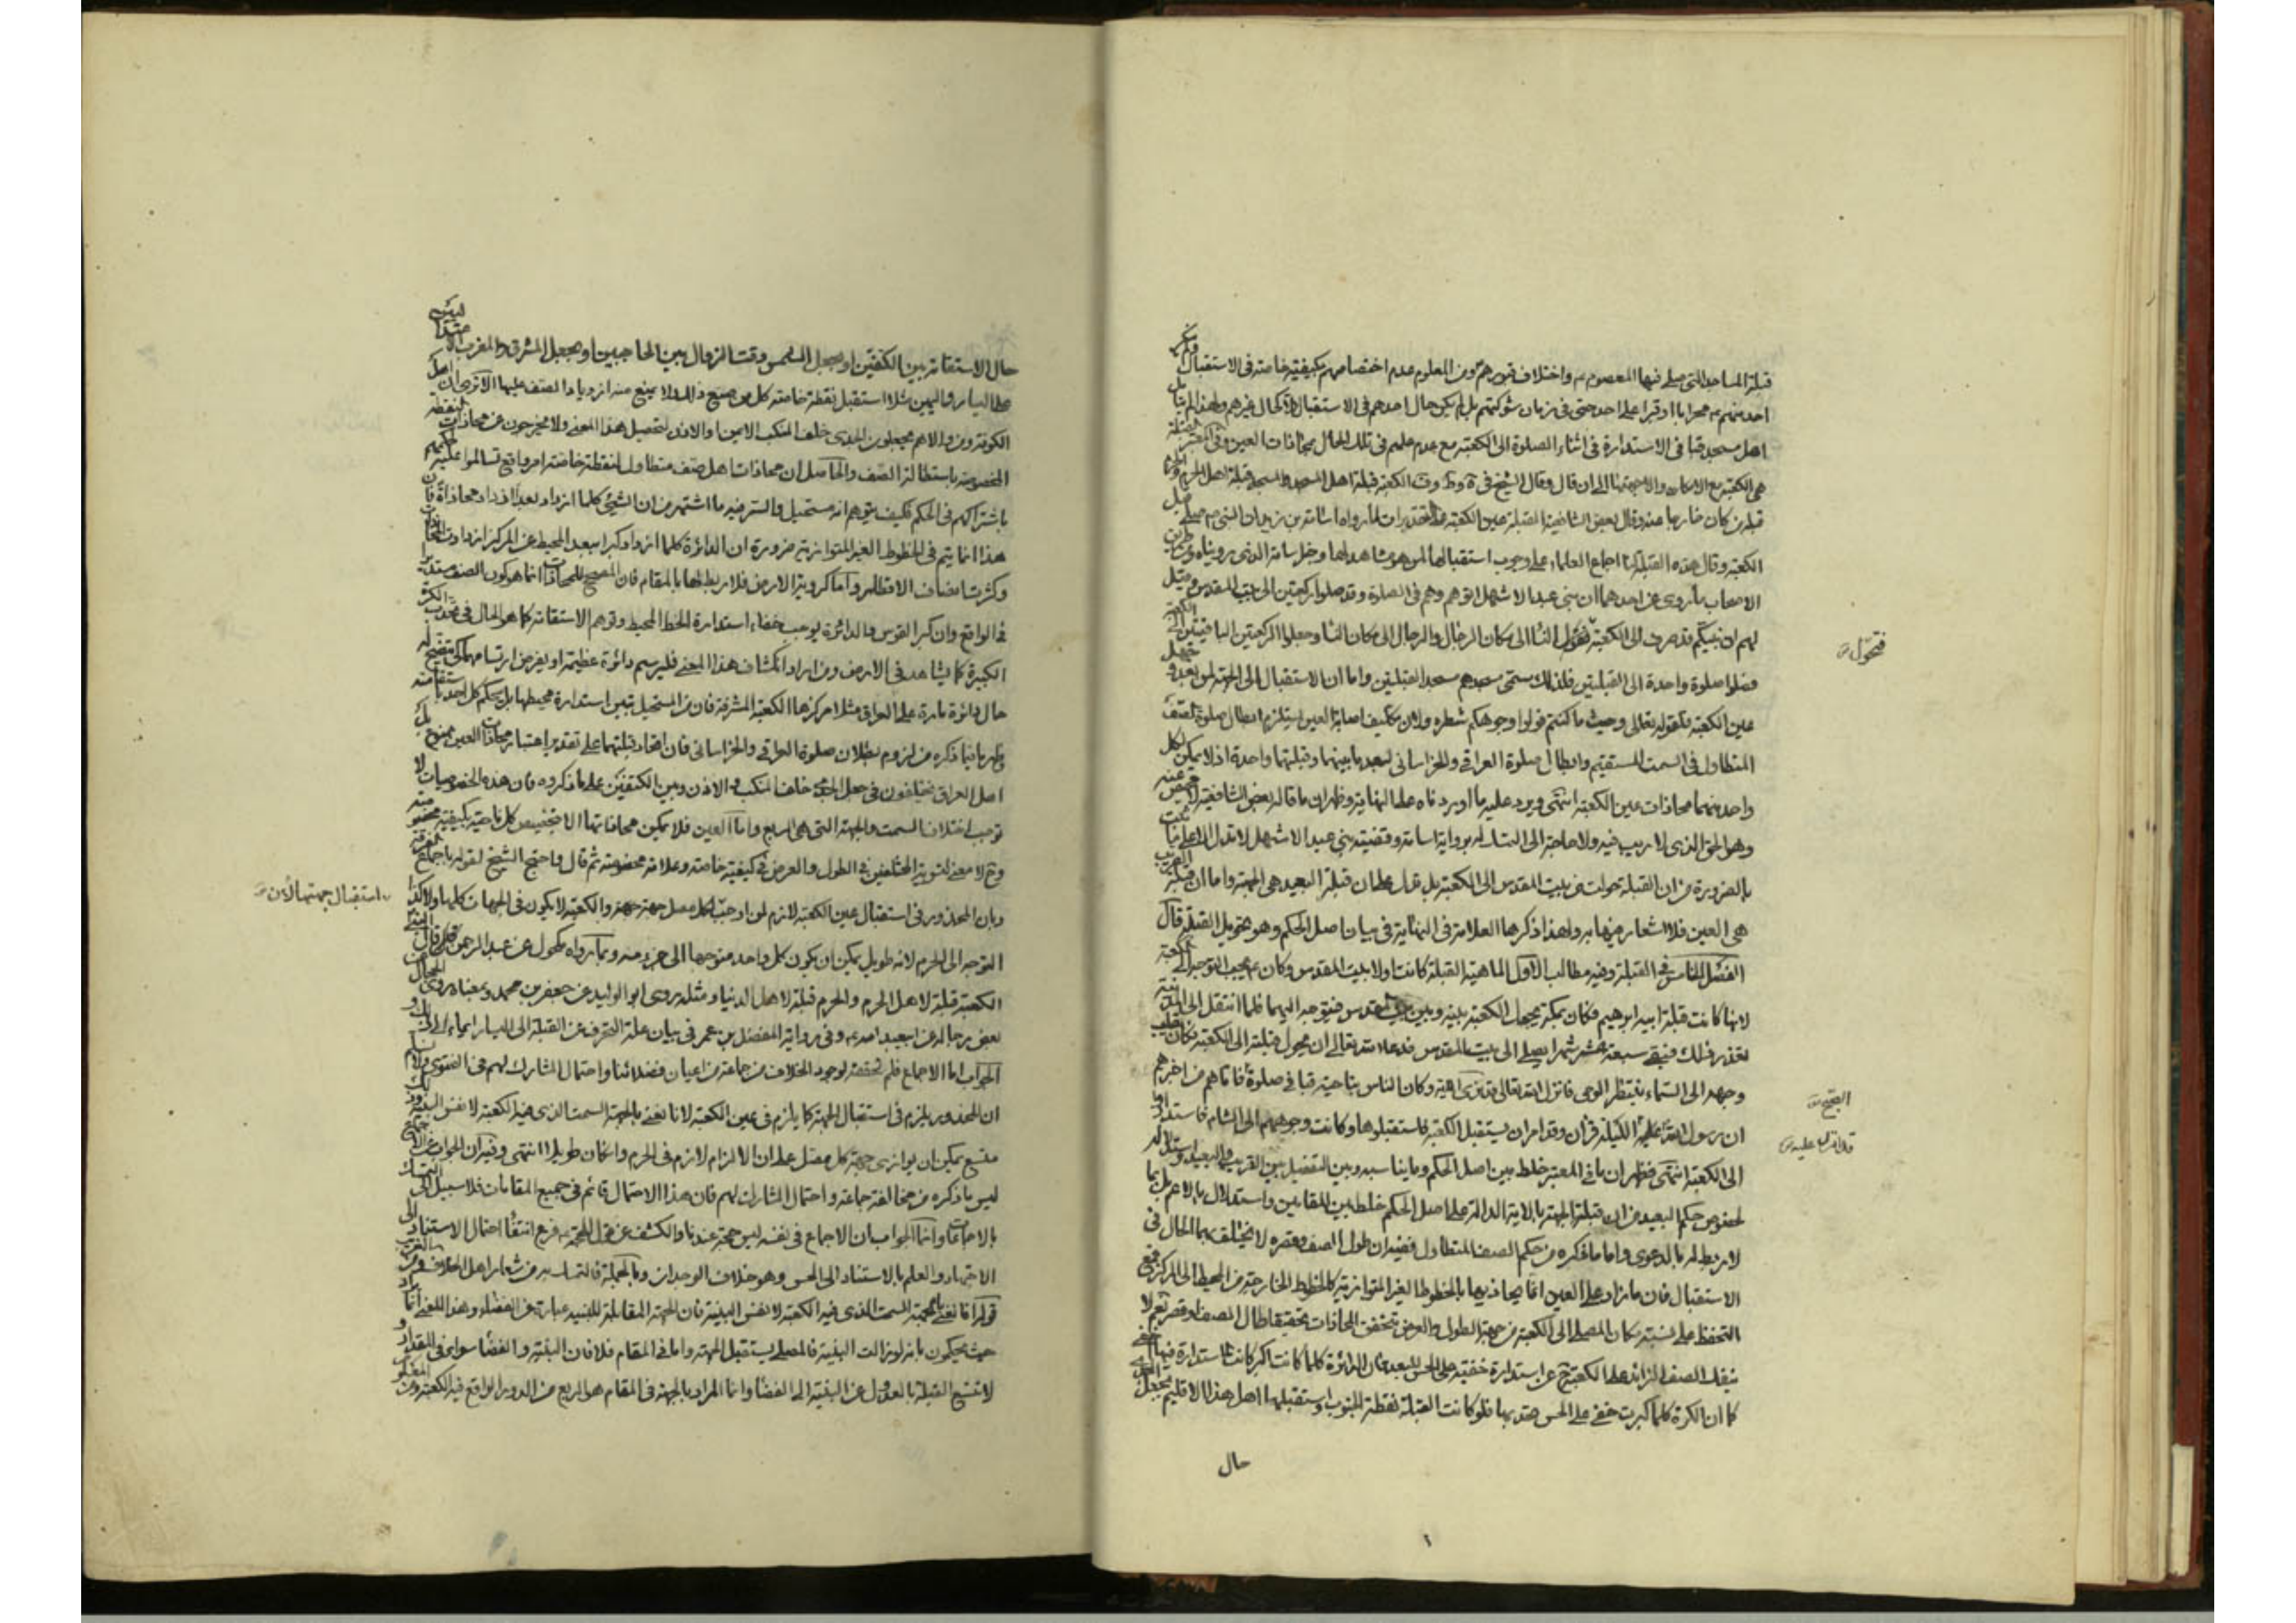 قبلة المساجد التي صلى فيها المعصوم واختلاف قبورهم ومن المعلوم عدم اختصاصهم بكيفية خاصة في الاستقبال
احد منهم محرابا او قبرا على احد حتى في زمان شوكتهم بل لم يكن حال احدهم في الاستقبال الا كحال غيرهم ولهذا لم
اهل مسجد قبا في الاستدارة في اثناء الصلوة الى الكعبة مع عدم علمهم في تلك الحال بمحاذات العين وفي المعتبر
هي الكعبة مع الامكان والا جهتها الى ان قال وقال الشيخ في الكعبة قبلة اهل المسجد والمسجد قبلة اهل الحرم
قبلة من كان خارجا عنه وقال بعض الشافعية القبلة عين الكعبة على التقديرات لما رواه اسامة بن زيد ان النبي صلى
الكعبة وقال هذه القبلة لنا اجماع العلماء على وجوب استقبالها لمن هو مشاهد لها وخبر اسامة الذي رويناه ومن
الاصحاب ما روى عن احدهما ان بني عبد الاشهل اتوهم وهم في الصلوة وقد صلوا ركعتين الى بيت المقدس وقيل
لهم ان نبيكم قد صرف الى الكعبة فتحول النساء الى مكان الرجال والرجال الى مكان النساء وجعلوا الركعتين الباقيتين الى الكعبة
فصلوا صلوة واحدة الى القبلتين فلذلك سمى مسجدهم مسجد القبلتين واما ان الاستقبال الى الجهة لمن بعد
عين الكعبة فلقوله تعالى وحيث ما كنتم فولوا وجوهكم شطره ولان تكليف اصابة العين يستلزم ابطال صلوة الصف
المتطاول في السمت المستقيم وابطال صلوة العراقي والخراساني لبعد ما بينهما وقبلتهما واحدة اذ لا يمكن كل
واحد منهما محاذات عين الكعبة انتهى ويرد عليه ما اوردناه على النهاية وظهر ان ما قاله بعض الشافعية
وهو الحق الذي لا ريب فيه ولا حاجة الى التمسك له برواية اسامة وقضية بني عبد الاشهل لا تدل الا على ما ثبت
بالضرورة من ان القبلة حولت من بيت المقدس الى الكعبة بل تدل على ان قبلة البعيد هي الجهة واما ان قبلة القريب
هي العين فلا اشعار فيها به ولهذا ذكرها العلامة في النهاية في بيان اصل الحكم وهو تحويل القبلة قال
الفصل الخامس في القبلة وفيه مطالب الاول الماهية القبلة كانت اولا بيت المقدس وكان يحب التوجه الى الكعبة
لانها كانت قبلة ابيه ابرهيم فكان بمكة يجعل الكعبة بينه وبين بيت المقدس فيتوجه اليهما فلما انتقل الى المدينة
تعذر ذلك فبقي سبعة عشر شهرا يصلى الى بيت المقدس فدعا الله تعالى ان يحول قبلته الى الكعبة فكان يقلب
وجهه الى السماء ينتظر الوحي فانزل الله تعالى قد نرى الاية وكان الناس بناحية قبا في صلوة فاتاهم من اخبرهم
ان رسول الله عليه الليلة قرآن وقد امر ان يستقبل الكعبة فاستقبلوها وكانت وجوههم الى الشام فاستداروا
الى الكعبة انتهى فظهر ان ما في المعتبر خلط بين اصل الحكم وما يناسبه وبين التفصيل بين القريب والبعيد
لخصوص حكم البعيد من ان قبلته الجهة بالاية الدالة على اصل الحكم خلط بين المقامين واستدلال بالاعم بل بما
لا ربط له بالدعوى واما ما ذكره من حكم الصف المتطاول ففيه ان طول الصف وقصره لا يختلف بهما الحال في
الاستقبال فان ما زاد على العين انما يحاذيها بالخطوط الغير المتوازية كالخطوط الخارجة من المحيط الى المركز فمع
التحفظ على نسبة مكان المصلى الى الكعبة من جهة الطول والعرض يتحقق المحاذات حقيقة طال الصف او قصر نعم لا
ينفك الصف الزائد على الكعبة عن استدارة خفية على الحس للبعد فان الدائرة كلما كانت اكبر كانت الاستدارة فيها اخفى
كما ان الكرة كلما كبرت خفى على الحس تحدبها فلو كانت القبلة نقطة الجنوب واستقبلها اهل هذا الاقليم بجعل
حال
فتحول
الصبح
قد انزل عليه
حال الاستقامة بين الكتفين او يجعل الشمس وقت الزوال بين الحاجبين او يجعل المشرق والمغرب
على اليسار واليمين مثلا استقبل نقطة خاصة كل من صنع ذلك ولا يمنع منه ازدياد الصف عليها الا ترى ان اهل
الكوفة ومن والاهم يجعلون الجدى خلف المنكب الايمن والاذن لتحصيل هذا المعنى ولا يخرجون عن محاذات النقطة
المخصوصة باستطالة الصف والحاصل ان محاذات اهل صف متطاول لنقطة خاصة امر واقع تسالموا عليه
باشتراكهم في الحكم فكيف يتوهم انه مستحيل والسر فيه ما اشتهر من ان الشيئ كلما ازداد بعدا ازداد محاذاة فان
هذا انما يتم في الخطوط الغير المتوازية ضرورة ان الدائرة كلما ازداد كبرا ببعد المحيط عن المركز ازدادت
وكثرت اضعاف الاقطار واما كروية الارض فلا ربط لها بالمقام فان المصحح للمحاذات انما هو كون الصف مستديرا
في الواقع وان كبر القوس والدائرة يوجب خفاء استدارة الخط المحيط وتوهم الاستقامة كما هو الحال في تحدب الكرة
الكبيرة كما يشاهد في الارض ومن اراد انكشاف هذا المعنى فليرسم دائرة عظيمة او يفرض ارتسامها لكي يتضح له
حال دائرة مارة على العراق مثلا مركزها الكعبة المشرفة فان من المستحيل تبين استدارة محيطها بل يحكم كل احد باستقامته
وظهر ما فيما ذكره من لزوم بطلان صلوة العراقي والخراساني فان اتحاد قبلتهما على تقدير اعتبار محاذات العين ممنوع بل
اهل العراق يختلفون في جعل الجدى خلف المنكب والاذن وبين الكتفين على ما ذكروه فان هذه الخصوصيات لا
توجب اختلاف السمت والجهة التي هي اوسع واما العين فلا يمكن محاذاتها الا بتخصيص كل ناحية بكيفية مخصوصة
ومع لا معنى لتسوية المختلفين في الطول والعرض في كيفية خاصة وعلامة مخصوصة ثم قال واحتج الشيخ لقوله باجماع الفرقة
وبان المحذور في استقبال عين الكعبة لازم لمن اوجب لكل مصل جهة والكعبة لا يكون في الجهات كلها ولا كذا
التوجه الى الحرم لانه طويل يمكن ان يكون كل واحد متوجها الى جزء منه وبما رواه مكحول عن عبد الرحمن قال قال
الكعبة قبلة لاهل الحرم والحرم قبلة لاهل الدنيا ومثله روى ابو الوليد عن جعفر بن محمد وبمعناه روى
بعض رجاله عن ابيعبد الله وفي رواية المفضل بن عمر في بيان علة التحرف عن القبلة الى اليسار ايماء الى ذلك و
الجواب اما الاجماع فلم نتحققه لوجود الخلاف من جماعة من اعيان فضلائنا واحتمال المشارك لهم في الفتوى
ان المحذور يلزم في استقبال الجهة كما يلزم في عين الكعبة لانا نعنى بالجهة السمت الذي فيه الكعبة لا نفس البنية وذلك
متسع يمكن ان يوازى جهة كل مصل على ان الالزام لازم في الحرم وان كان طويلا انتهى وفيه ان الجواب عن الاجماع
ليس ما ذكره من مخالفة جماعة واحتمال المشارك لهم فان هذا الاحتمال قائم في جميع المقامات فلا سبيل الى التمسك
بالاجماعات وانما الجواب ان الاجماع في نفسه ليس حجة عندنا والكشف عن قول الحجة فرع انتفاء احتمال الاستناد الى
الاجتهاد والعلم بالاستناد الى الحس وهو خلاف الوجدان وبالجملة فالتمسك به من شعار اهل الخلاف ومن الغريب
قوله انا نعنى بالجهة السمت الذي فيه الكعبة لا نفس البنية فان الجهة المقابلة للبنية عبارة عن الفضاء وهذا المعنى انما يراد
حيث يحكمون بانه لو زالت البنية فالمصلى يستقبل الجهة واما في المقام فلا فان البنية والفضاء سواء في المقدار و
لا تتسع القبلة بالعدول عن البنية الى الفضاء وانما المراد بالجهة في المقام هو الربع من الدور الواقع فيه الكعبة ومن
استقبال جهتها لان